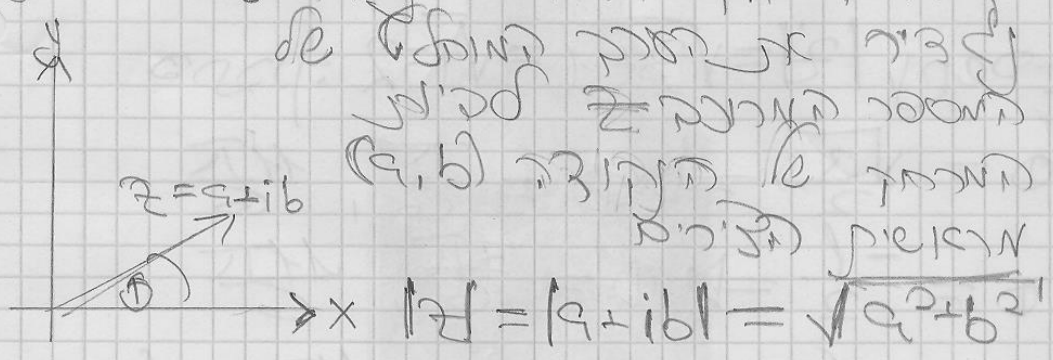 נגדיר את הערך המוחלט של
המספר המרוכב z להיות
המרחק של הנקודה (a,b)
מראשית הצירים
|z| = |a+ib| = √a²+b²
y
z = a+ib
θ
x